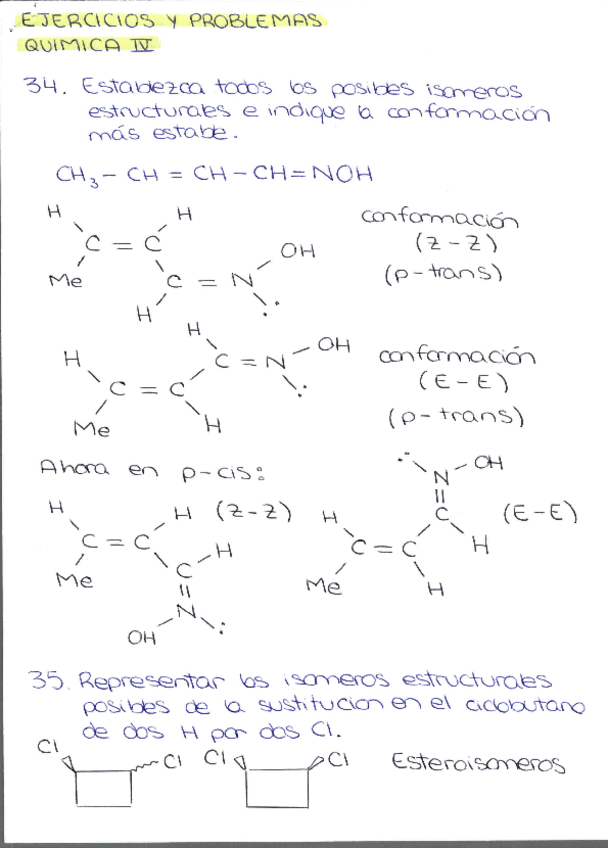 EJERCICIOS Y PROBLEMAS
QUIMICA IV
34. Establezca todos los posibles isomeros
estructurales e indique la conformación
más estable.
CH3 - CH = CH - CH = NOH
H H
C = C OH
Me C = N
H :
conformación
(Z-Z)
(p-trans)
H
H C = N - OH
C = C :
Me H
conformación
(E-E)
(p-trans)
Ahora en p-cis:
H H (Z-Z)
C = C H
Me C
=
N
OH :
: N - OH
=
H C (E-E)
C = C H
Me H
35. Representar los isomeros estructurales
posibles de la sustitucion en el ciclobutano
de dos H por dos Cl.
Cl Cl Cl Cl Esteroisomeros